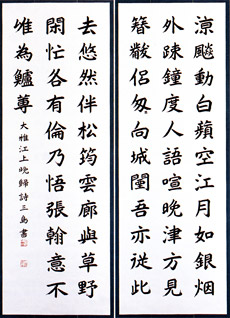 涼飇動白蘋空江月如銀烟
外疎鐘度人語喧晚津方見
簪黻侶匆向城闉吾亦從此
去悠然伴松筠雲廊與草野
閑忙各有倫乃悟張翰意不
唯為鱸蓴
大雅江上晚歸詩三島書